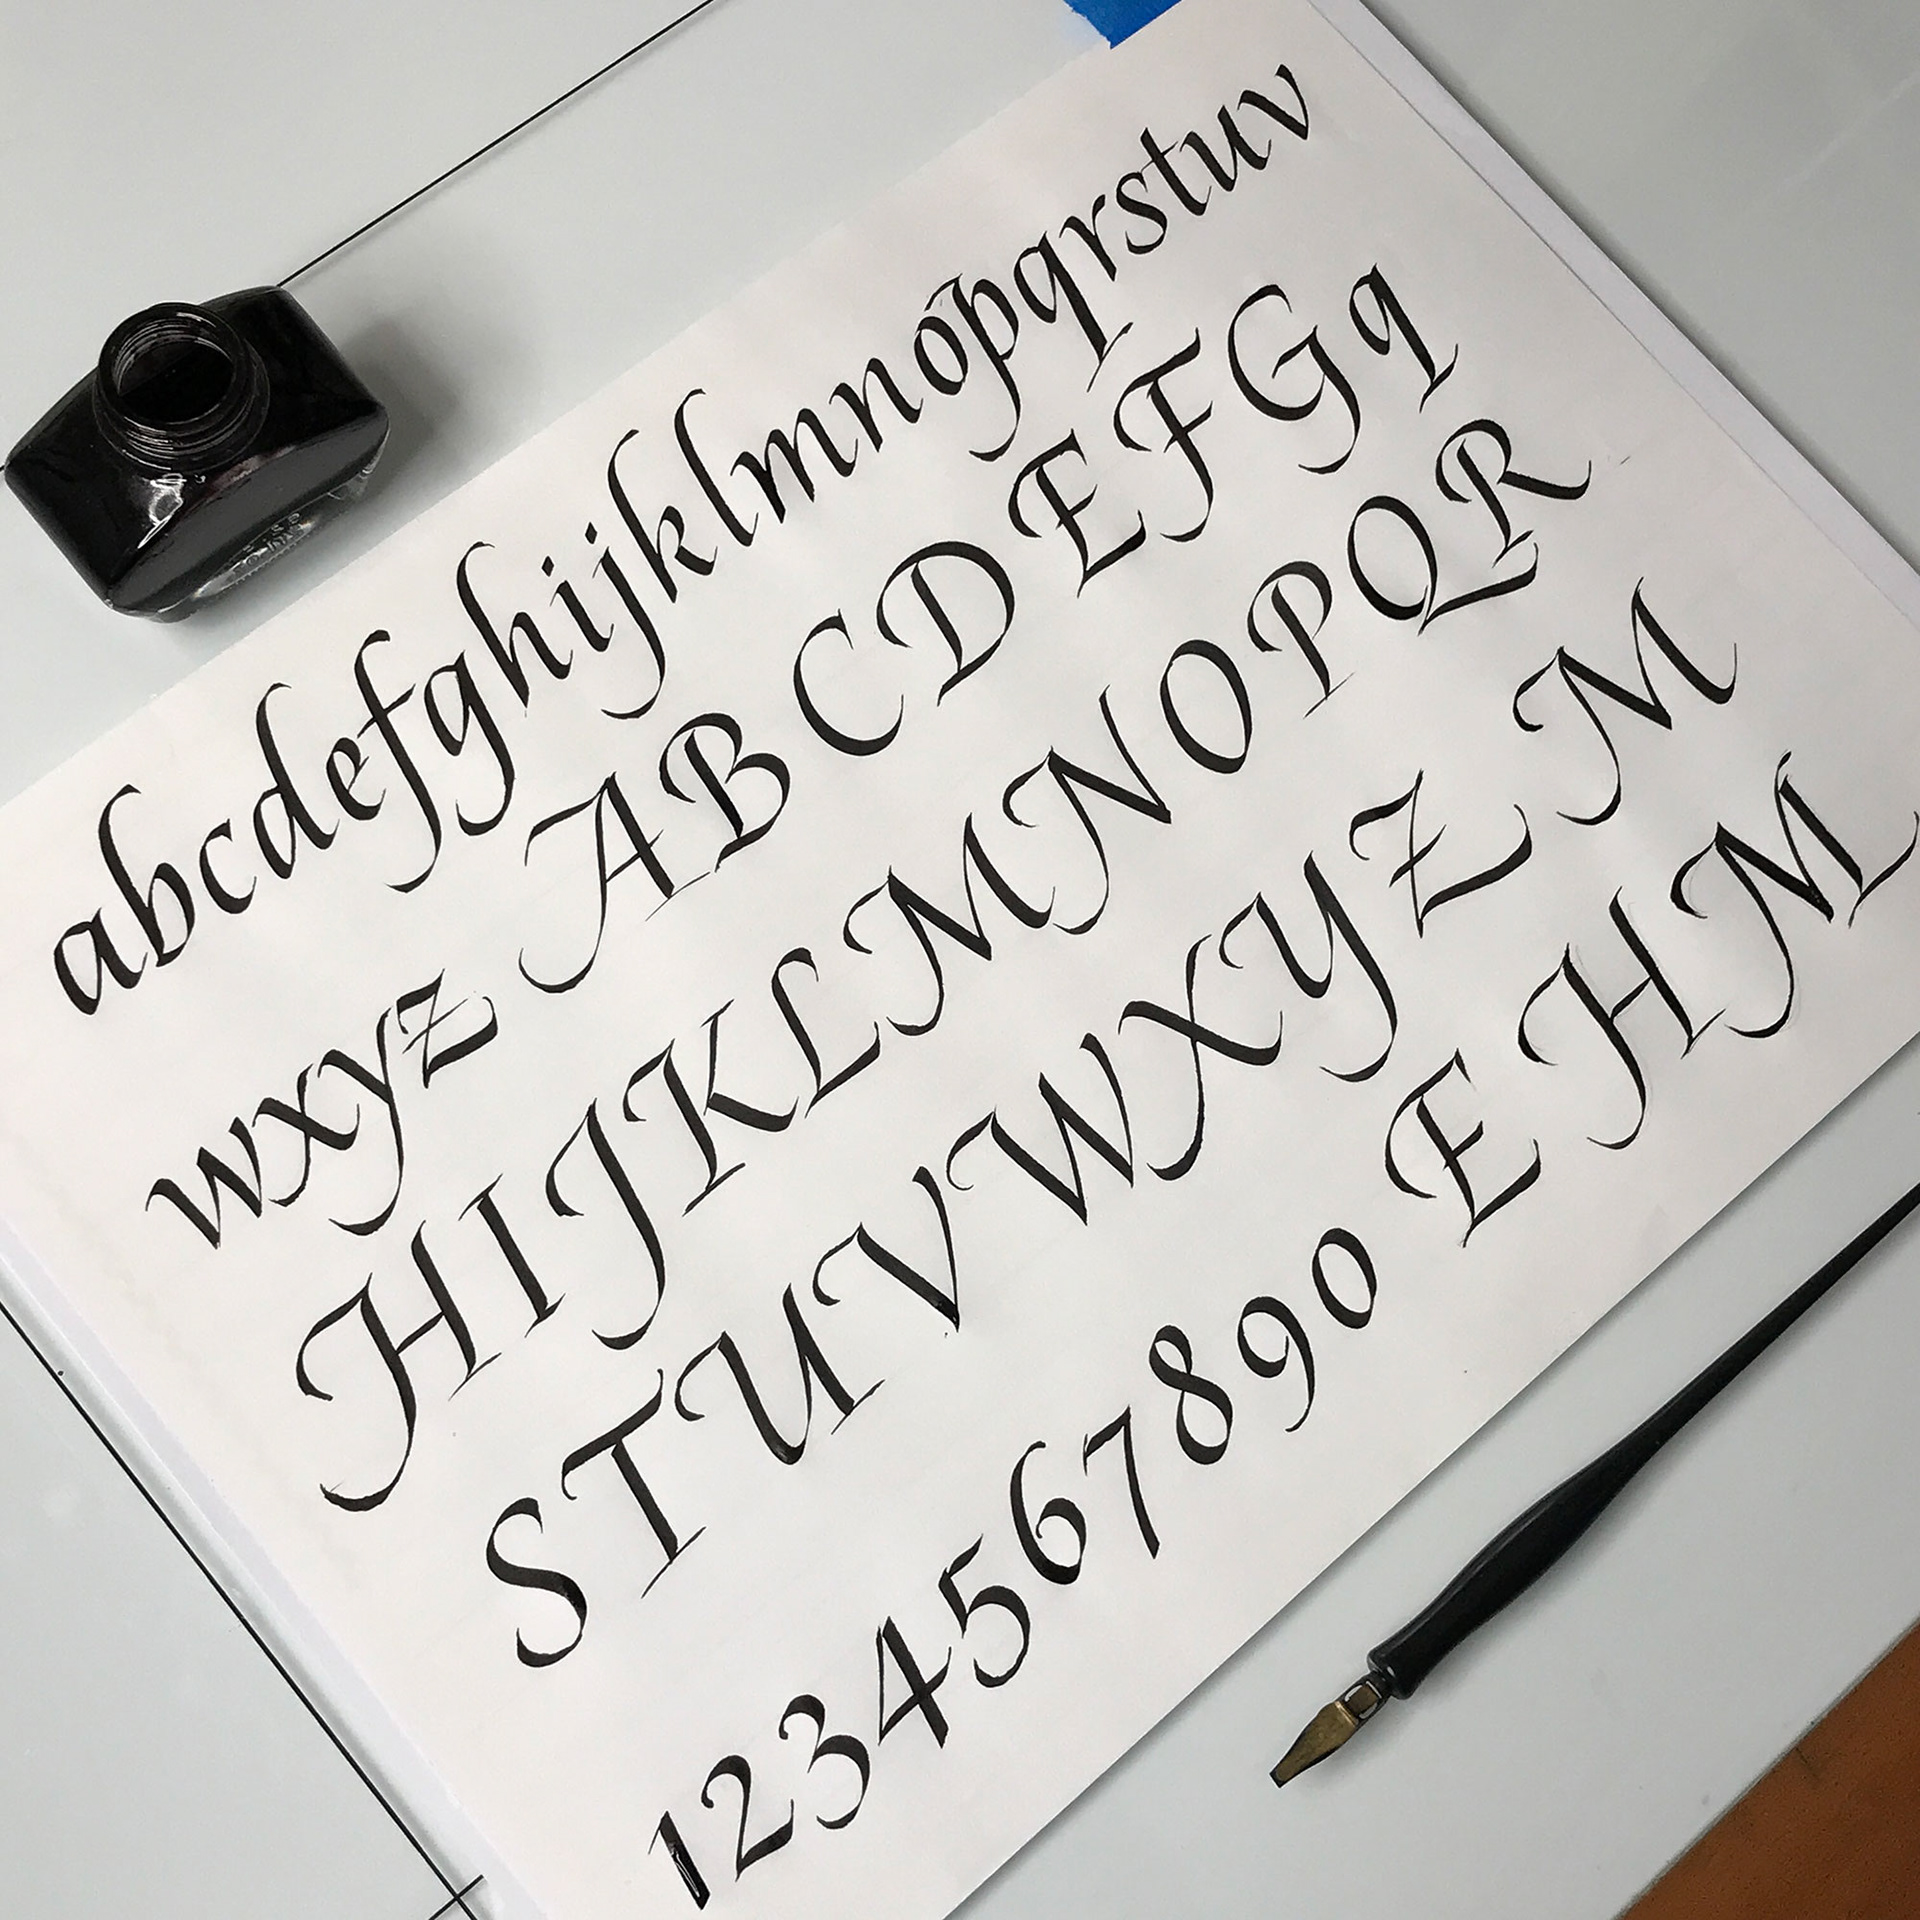 abcdefghijklmnopqrstuv
wxyz ABCDEFGq
HIJKLMNOPQR
STUVWXYZ M
1234567890 EHM